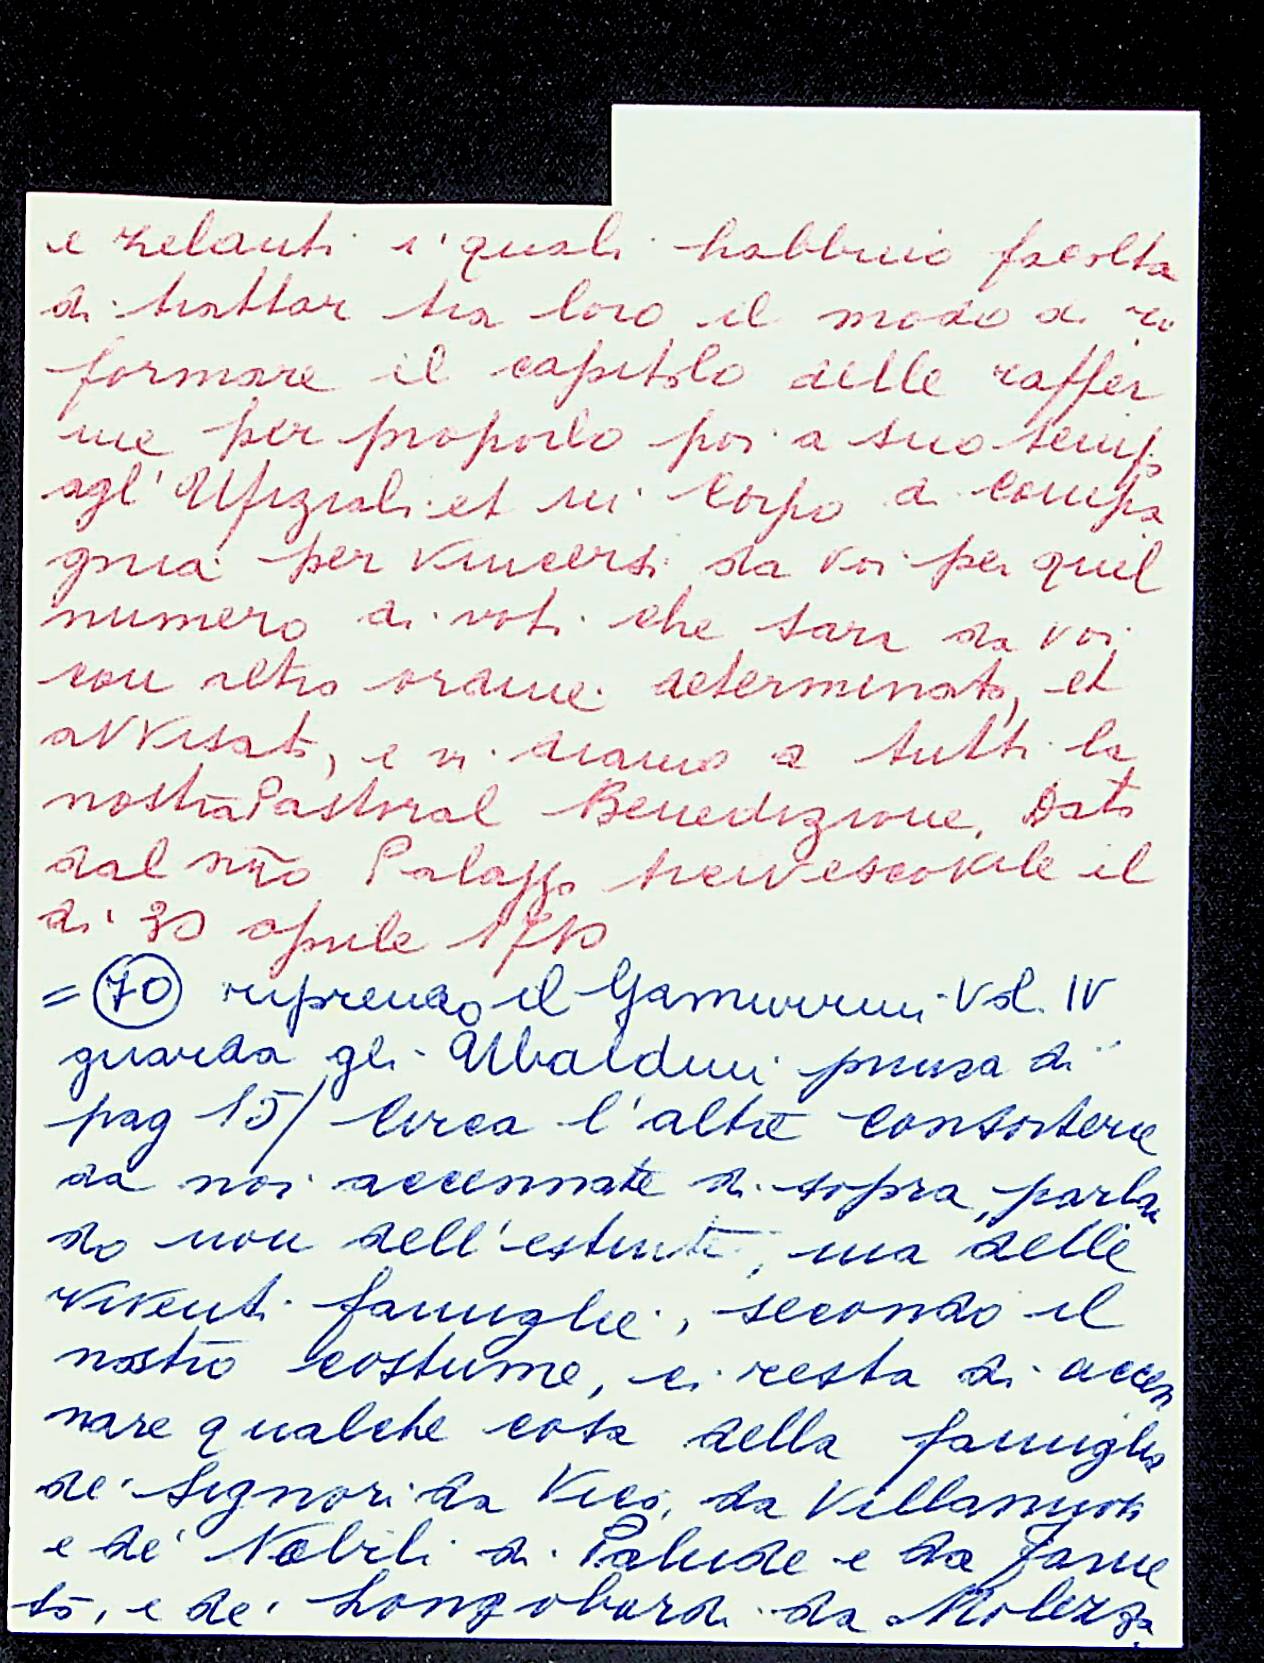 e zelanti i quali habbino facolta
di trattar tra loro il modo di ri
formare il capitolo delle raffer
me per proporlo poi a suo temp
agl' Ufiziali et in Corpo di Compa
gnia per vincersi da voi per quel
numero di voti che sara da voi
con altro ordine determinato, et
avvisato, e vi diamo a tutti la
nostra Pastoral Benedizione. Dato
dal nro Palazzo Arcivescovile il
di 30 aprile 1710
= 70 riprendo il Gamurrini Vol. IV
guarda gli Ubaldini prima di
pag 15/ Circa l'altre consorterie
da noi accennate di sopra, parlan
do non dell'estinte, ma delle
viventi famiglie, secondo il
nostro costume, ci resta di accen
nare qualche cosa della famiglia
de' Signori da Vico, da Villamon
e de' Nobili di Palude e da
to, e de' Longobardi da